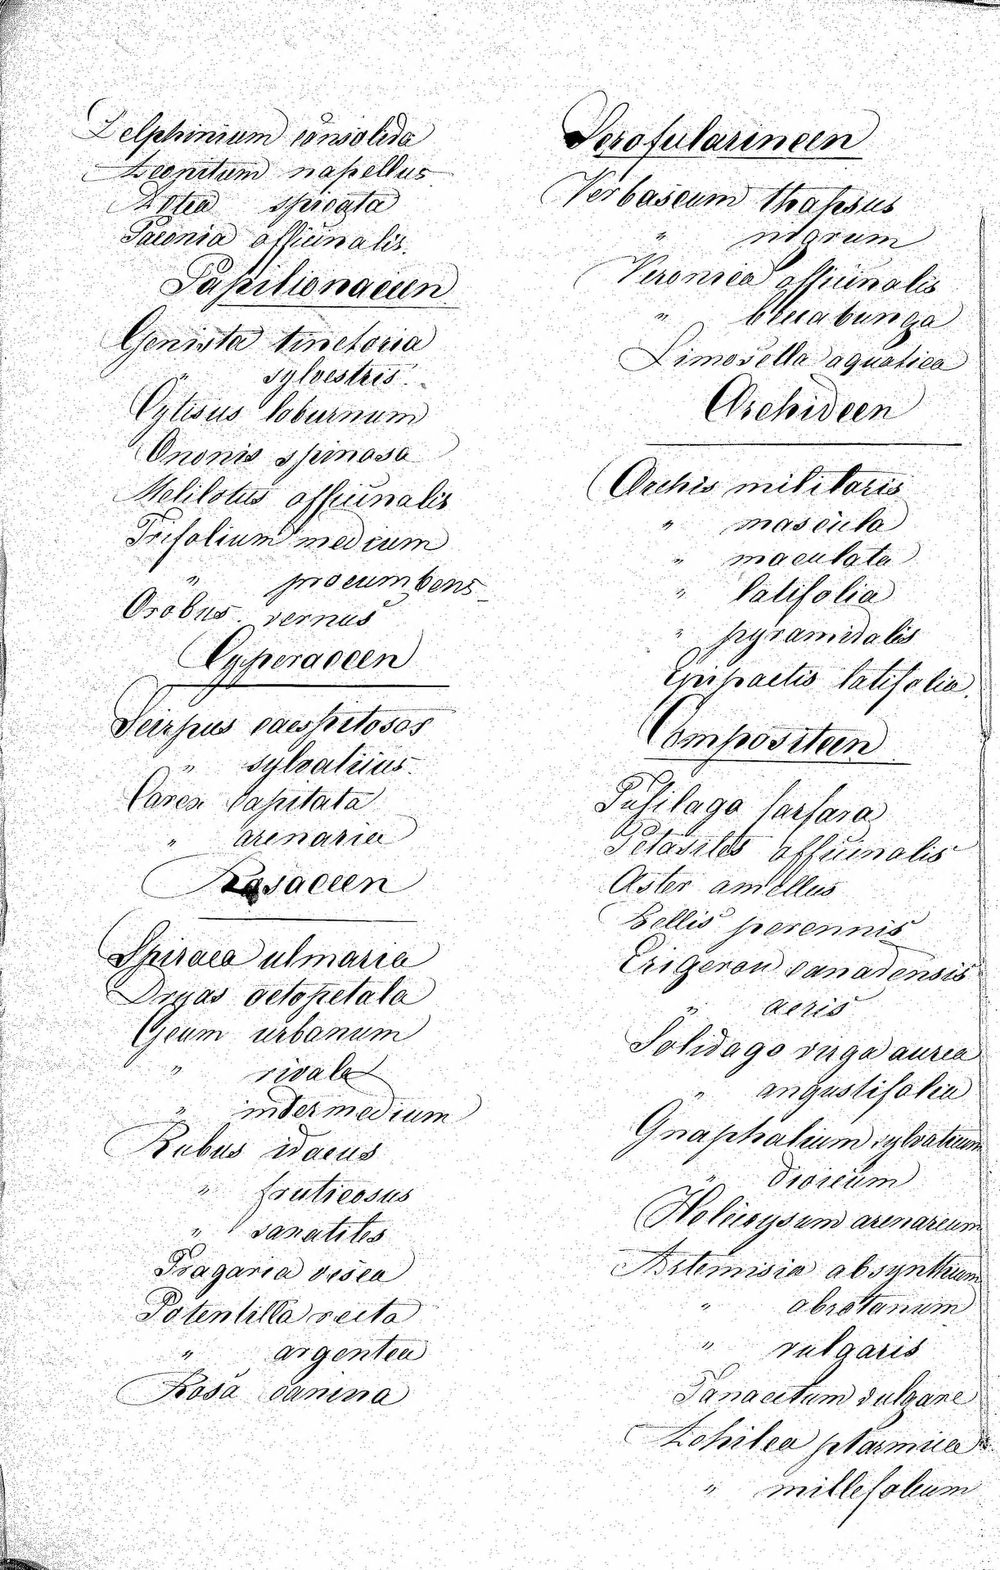 Delphinium consolida
Aconitum napellus
Actea spicata
Paeonia officinalis.
Papilionaceen
Genista tinctoria
" sylvestris.
Cytisus laburnum
Ononis spinosa
Melilotus officinalis
Trifolium medium
" procumbens
Orobus vernus
Cyperaceen
Scirpus caespitosos
" sylvaticus.
Carex capitata
" arenaria
Rosaceen
Spiraea ulmaria
Dryas octopetala
Geum urbanum
" rivale
" intermedium
Rubus idaeus
" fruticosus
" saxatiles
Fragaria vesca
Potentilla recta
" argentea
Rosa canina
Scrofularineen
Verbascum thapsus
" nigrum
Veronica officinalis
" beccabunga
Limosella aquatica
Orchideen
Orchis militaris
" mascula
" maculata
" latifolia
" pyramidalis
Epipactis latifolia.
Compositeen
Tussilago farfara
Petasites officinalis
Aster amellus
Bellis perennis
Erigeron canadensis
" acris
Solidago virga aurea
" angustifolia
Gnaphalium sylvaticum
" dioicum
Helicrysum arenareum
Artemisia absynthium
" abrotanum
" vulgaris
Tanacetum vulgare
Achilea ptarmica
" millefolium